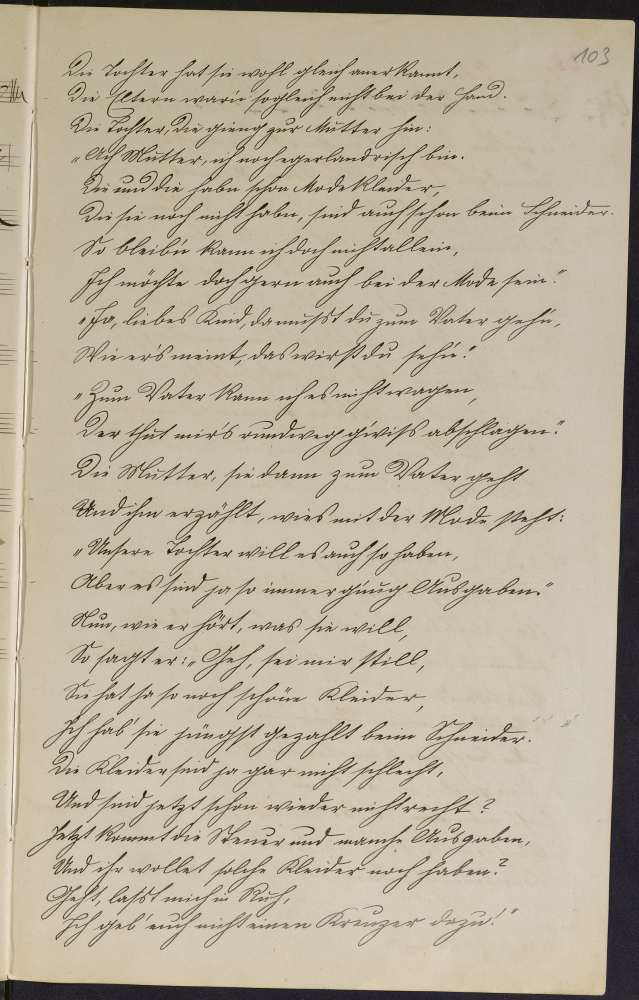 103
Die Tochter hat sie wohl gleich anerkannt,
Die Eltern warn sogleich nicht bei der Hand.
Die Tochter, die gieng zur Mutter hin:
„Ach Mutter, ich noch egerlandrisch bin.
Die und die habn schon Modekleider,
Die sie noch nicht habn, sind auch schon beim Schneider.
So bleib'n kann ich doch nicht allein,
Ich möchte doch gern auch bei der Mode sein."
„Ja, liebes Kind, da musst du zum Vater gehn,
Wie er's meint, das wirst du sehn."
„Zum Vater kann ich es nicht wagen,
Der thut mir's rundweg g'wiss abschlagen."
Die Mutter, sie dann zum Vater geht
Und ihm erzählt, wies mit der Mode steht:
„Unsere Tochter will es auch so haben,
Aber es sind ja so immer g'nug Ausgaben."
Nun, wie er hört, was sie will,
So sagt er: „Geh, sei mir still,
Sie hat ja so noch schöne Kleider,
Ich hab' sie jüngst gezahlt beim Schneider.
Die Kleider sind ja gar nicht schlecht,
Und sind jetzt schon wieder nicht recht?
Jetzt kommt die Steuer und manche Ausgaben,
Und ihr wollet solche Kleider noch haben?
Geht, lasst mich in Ruh,
Ich geb' euch nicht einen Kreuzer dazu!"